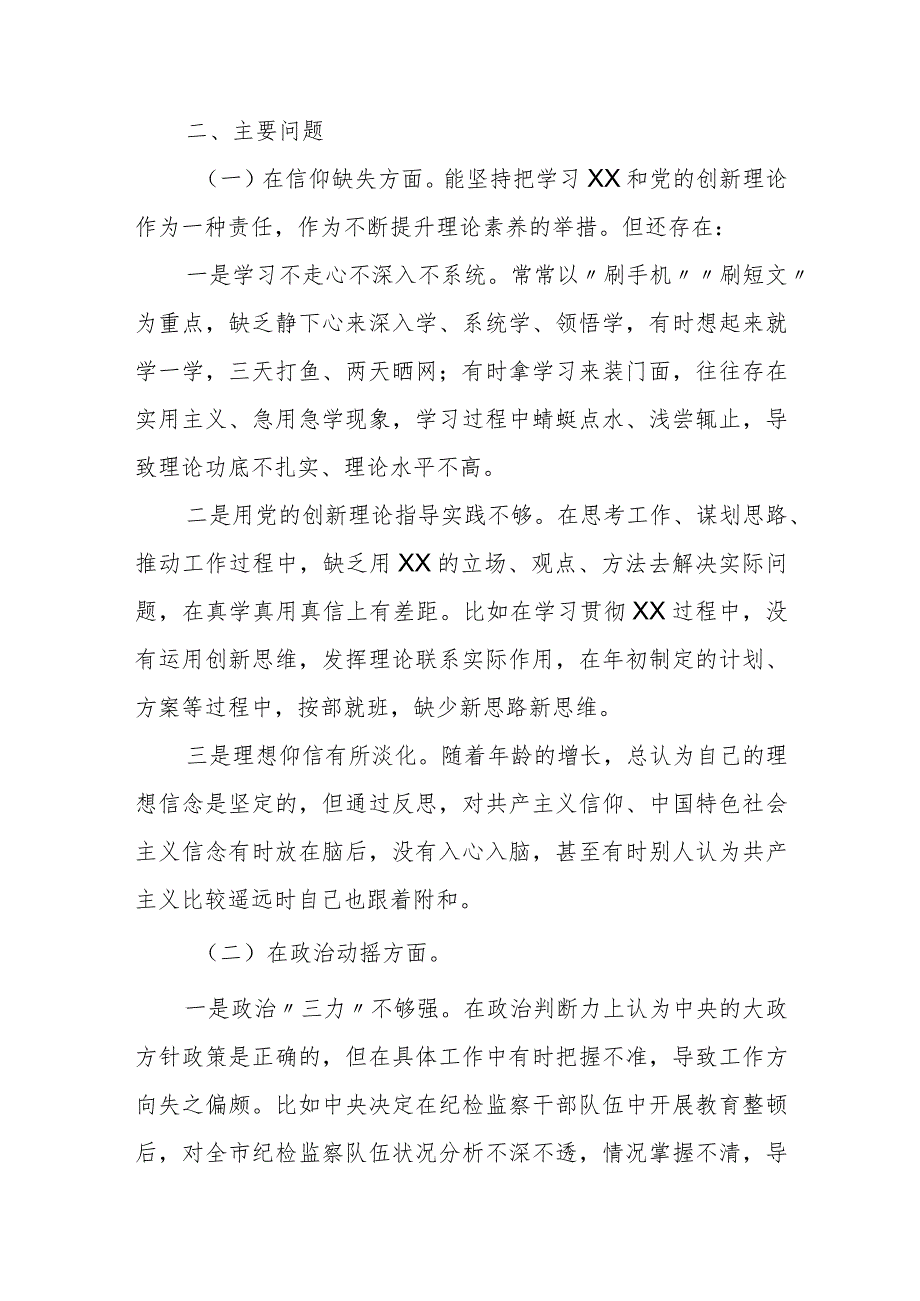 二、主要问题
（一）在信仰缺失方面。能坚持把学习 XX 和党的创新理论
作为一种责任，作为不断提升理论素养的举措。但还存在：
一是学习不走心不深入不系统。常常以〃刷手机〃〃刷短文〃
为重点，缺乏静下心来深入学、系统学、领悟学，有时想起来就
学一学，三天打鱼、两天晒网；有时拿学习来装门面，往往存在
实用主义、急用急学现象，学习过程中蜻蜓点水、浅尝辄止，导
致理论功底不扎实、理论水平不高。
二是用党的创新理论指导实践不够。在思考工作、谋划思路、
推动工作过程中，缺乏用 XX 的立场、观点、方法去解决实际问
题，在真学真用真信上有差距。比如在学习贯彻 XX 过程中，没
有运用创新思维，发挥理论联系实际作用，在年初制定的计划、
方案等过程中，按部就班，缺少新思路新思维。
三是理想仰信有所淡化。随着年龄的增长，总认为自己的理
想信念是坚定的，但通过反思，对共产主义信仰、中国特色社会
主义信念有时放在脑后，没有入心入脑，甚至有时别人认为共产
主义比较遥远时自己也跟着附和。
（二）在政治动摇方面。
一是政治〃三力〃不够强。在政治判断力上认为中央的大政
方针政策是正确的，但在具体工作中有时把握不准，导致工作方
向失之偏颇。比如中央决定在纪检监察干部队伍中开展教育整顿
后，对全市纪检监察队伍状况分析不深不透，情况掌握不清，导